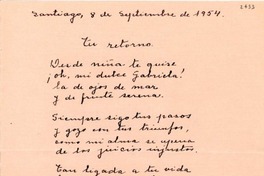 2733
Santiago, 8 de Septiembre de 1954.
Tu retorno.
Desde niña te quise
¡oh, mi dulce Gabriela!
la de ojos de mar
y de frente serena.
Siempre sigo tus pasos
y gozo con tus triunfos,
como mi alma se apena
de los juicios injustos.
Tan ligada a tu vida